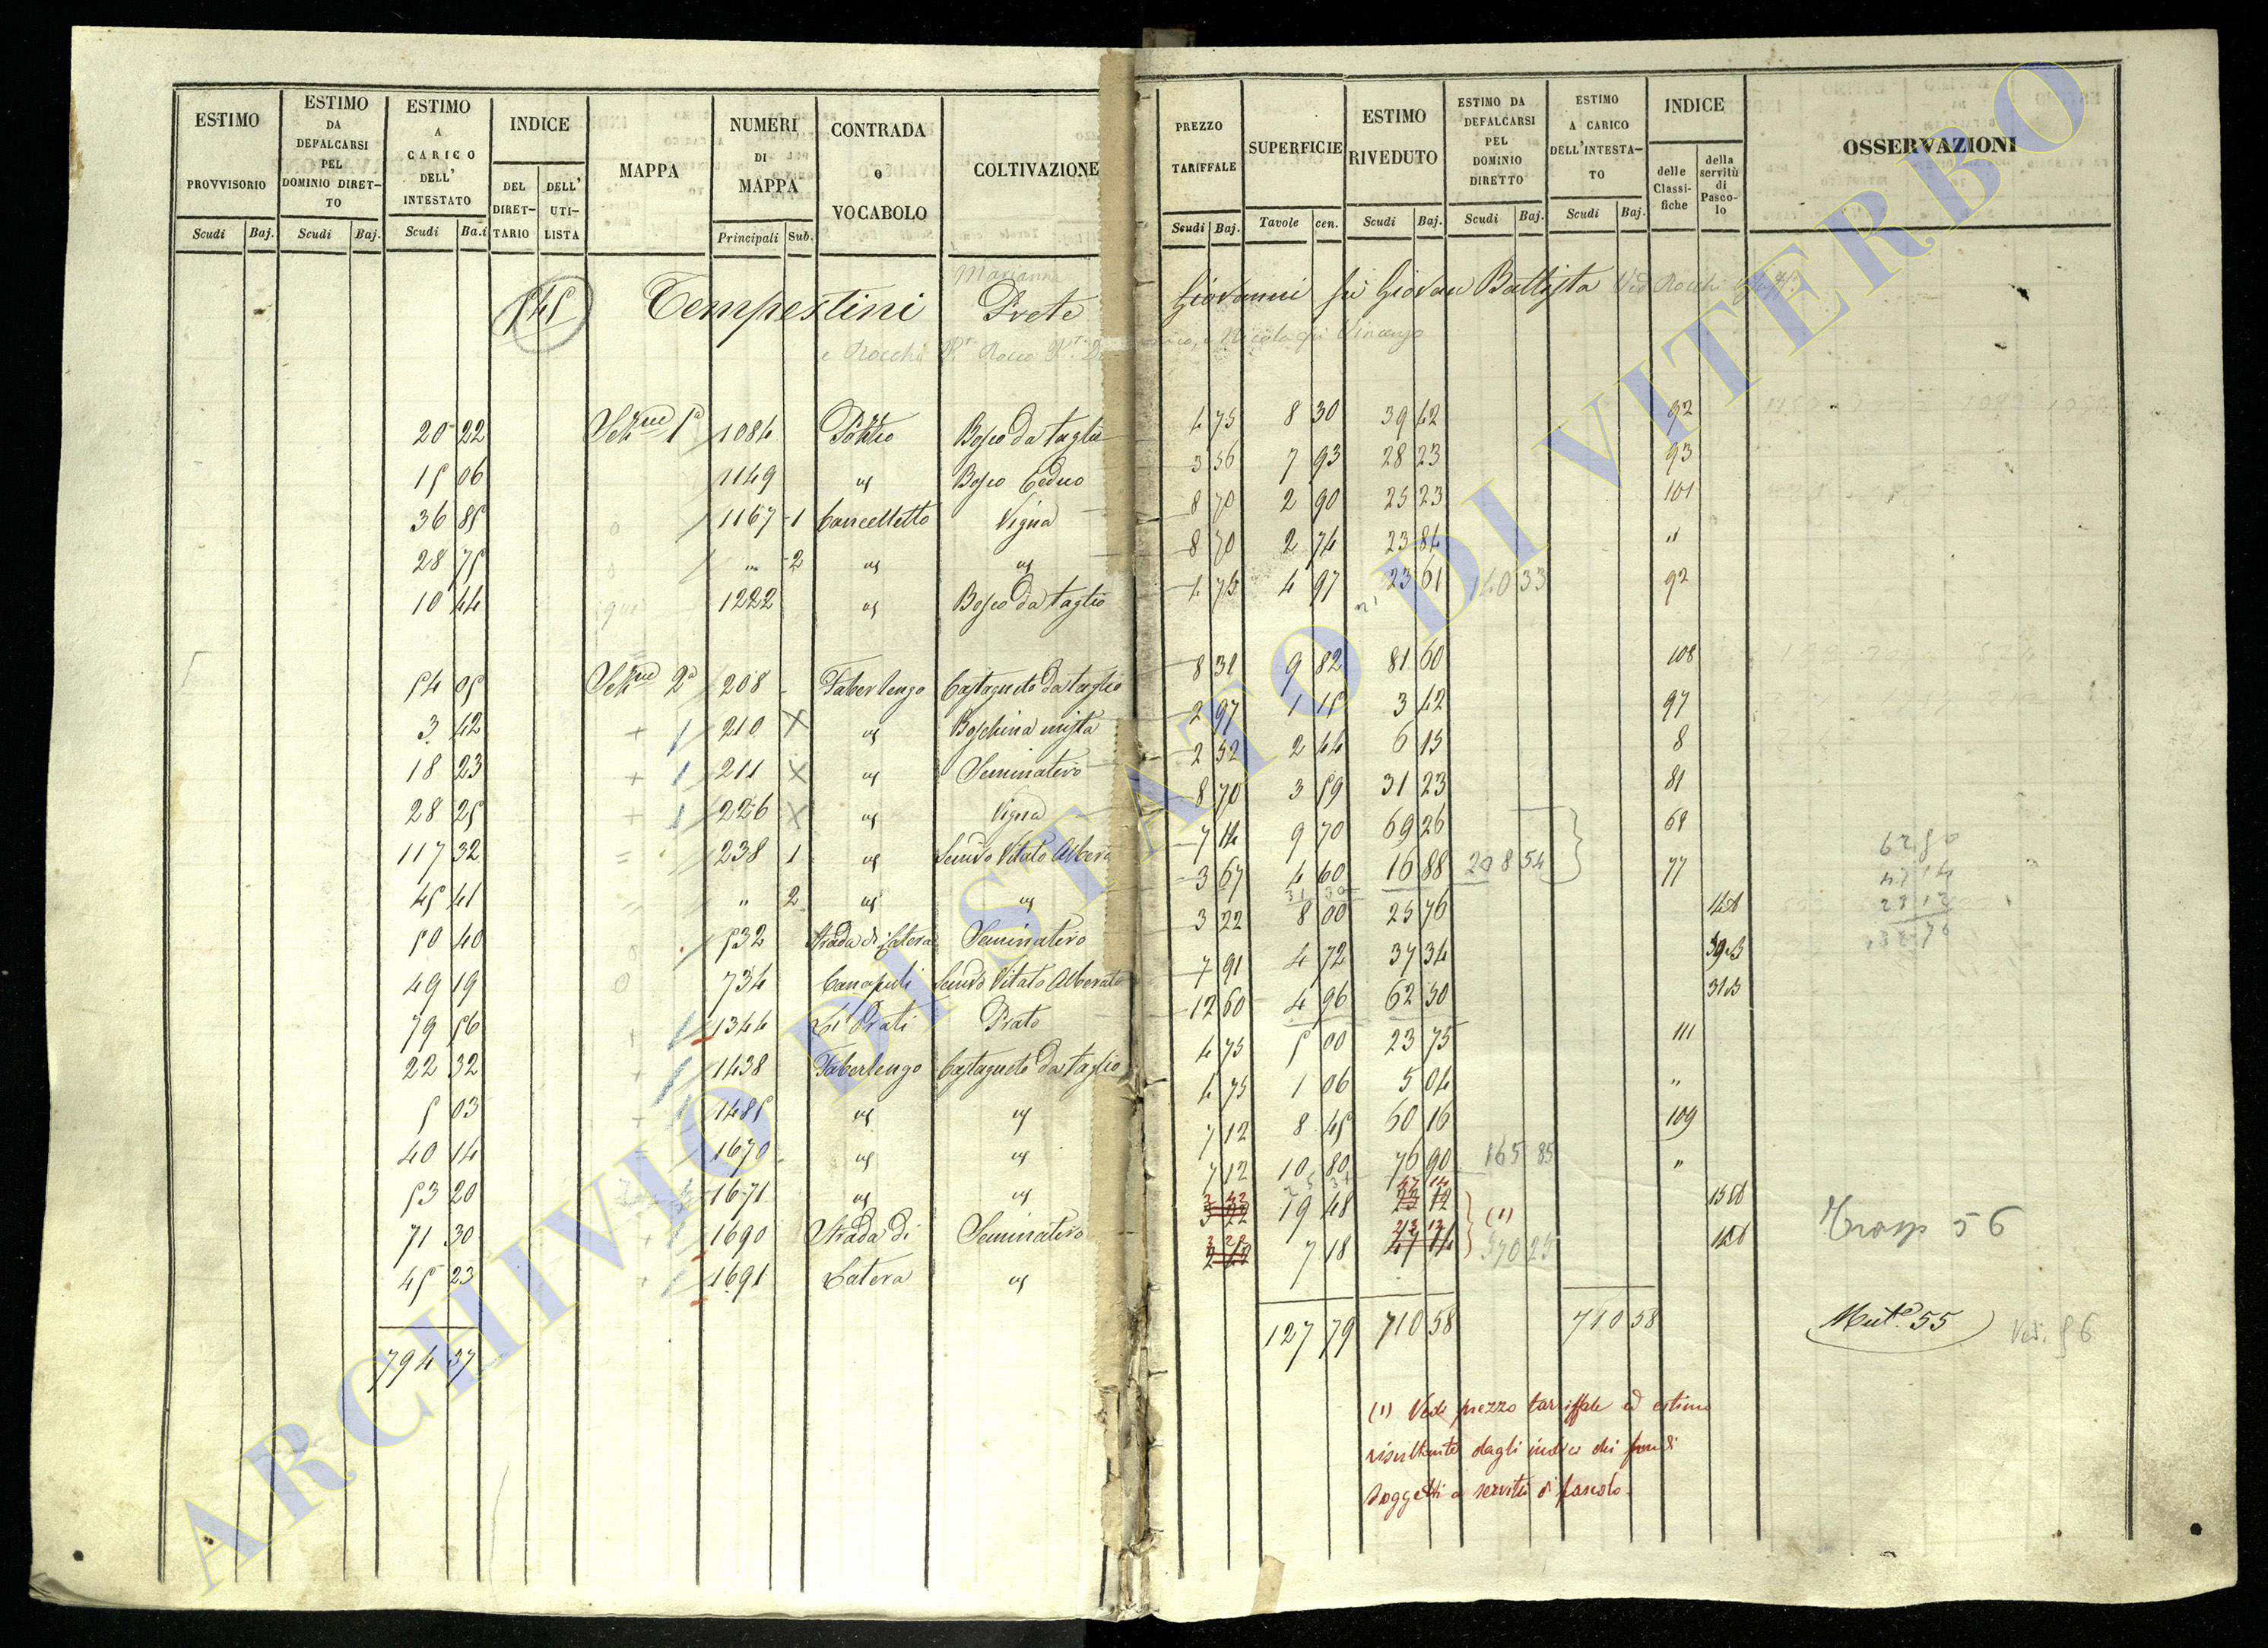 ESTIMO PROVVISORIO Scudi Baj.
ESTIMO DA DEFALCARSI PEL DOMINIO DIRET-TO Scudi Baj.
ESTIMO A CARICO DELL' INTESTATO Scudi Ba.i
INDICE DEL DIRET-TARIO DELL' UTI-LISTA
MAPPA
NUMERI DI MAPPA Principali Sub.
CONTRADA o VOCABOLO
COLTIVAZIONE
PREZZO TARIFFALE Scudi Baj.
SUPERFICIE Tavole cen.
ESTIMO RIVEDUTO Scudi Baj.
ESTIMO DA DEFALCARSI PEL DOMINIO DIRETTO Scudi Baj.
ESTIMO A CARICO DELL'INTESTA-TO Scudi Baj.
INDICE delle Classi-fiche della servitù di Pasco-lo
OSSERVAZIONI
Marianna
545 Tempestini Prete Giovanni fù Giovan Battista
e Rocchi Rocco Nicola fù Vincenzo
20 22 Sez.ne 1a 1084 Bosco da taglio 4 75 8 30 39 42 92
15 06 1149 " Bosco Ceduo 3 56 7 93 28 23 93
36 85 1167 1 Cancelletto Vigna 8 70 2 90 25 23 101
28 75 " 2 " " 8 70 2 74 23 84 "
10 44 1222 " Bosco da taglio 4 75 4 97 23 61 140 33 92
54 05 Sez.ne 2a 208 Taberlengo Castagneto da taglio 8 31 9 82 81 60 108
3 42 210 " Boschina mista 2 97 1 15 3 42 97
18 23 211 " Seminativo 2 52 2 44 6 15 8
28 25 226 " Vigna 8 70 3 59 31 23 81
117 32 238 1 " Semivo Vitato Alberato 7 14 9 70 69 26 68
45 41 " 2 " " 3 67 4 60 16 88 208 54 77
50 40 532 Strada di Latera Seminativo 3 22 8 00 25 76
49 19 734 Canapuli Semivo Vitato Alberato 7 91 4 72 37 34 39 B
79 56 1344 Li Prati Prato 12 60 4 96 62 50 31 B
22 32 1438 Taberlengo Castagneto da taglio 4 75 5 00 23 75 111
5 03 1485 " " 4 75 1 06 5 04 "
40 14 1670 " " 7 12 8 45 60 16 109
53 20 1671 " " 7 12 10 80 76 90 165 85 "
71 30 1690 Strada di Seminativo 19 48 (1)
45 23 1691 Latera " 7 18
Trasp 56
794 37 127 79 710 58 710 58 Mut.e 55
(1) Vedi prezzo tariffale ed estimo
risultante dagli indici dei fondi
soggetti a servitù di pascolo.
ARCHIVIO DI STATO DI VITERBO